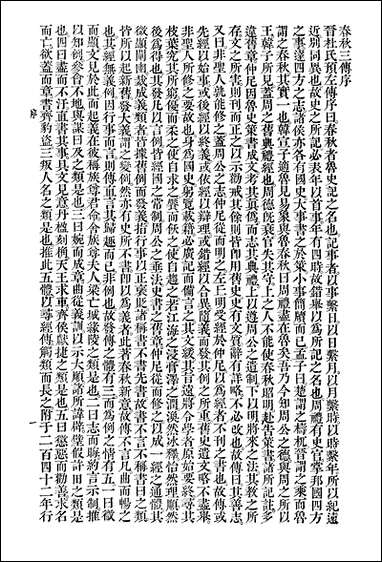 春秋三傳序
晉杜氏預左傳序曰春秋者魯史記之名也記事者以事繫日以日繫月以月繫時以時繫年所以紀遠
近別同異也故史之所記必表年以首事年有四時故錯舉以爲所記之名也周禮有史官掌邦國四方
之事達四方之志諸侯亦各有國史大事書之於策小事簡牘而已孟子曰楚謂之檮杌晉謂之乘而魯
謂之春秋其實一也韓宣子適魯見易象與魯春秋曰周禮盡在魯矣吾乃今知周公之德與周之所以
王韓子所見蓋周之舊典禮經也周德旣衰官失其守上之人不能使春秋昭明赴告策書諸所記註多
違舊章仲尼因魯史策書成文考其眞僞而志其典禮上以遵周公之遺制下以明將來之法其教之所
存文之所害則刋而正之以示勸戒其餘則皆卽用舊史史有文質辭有詳略不必改也故傳曰其善志
又曰非聖人孰能修之蓋周公之志仲尼從而明之左邱明受經於仲尼以爲經者不刋之書也故傳或
先經以始事或後經以終義或依經以辯理或錯經以合異隨義而發其例之所重舊史遺文略不盡舉
非聖人所修之要故也身爲國史躬覽載籍必廣記而備言之其文緩其旨遠將令學者原始要終尋其
枝葉究其所窮優而柔之使自求之饜而飫之使自趨之若江海之浸膏澤之潤渙然冰釋怡然理順然
後爲得也其發凡以言例皆經國之常制周公之垂法史書之舊章仲尼從而修之以成一經之通體其
微顯闡幽裁成義類者皆據舊例而發義指行事以正褒貶諸稱書不書先書故書不言不稱書曰之類
皆所以起新舊發大義謂之變例然亦有史所不書卽以爲義者此蓋春秋新意故傳不言凡曲而暢之
也其經無義例因行事而言則傳直言其歸趣而已非例也故發傳之體有三而爲例之情有五一曰微
而顯文見於此而起義在彼稱族尊君命舍族尊夫人梁亡城緣陵之類是也二曰志而晦約言示制推
以知例參會不地與謀曰及之類是也三曰婉而成章曲從義訓以示大順諸所諱辟璧假許田之類是
也四曰盡而不汙直書其事具文見意丹楹刻桷天王求車齊侯獻捷之類是也五曰懲惡而勸善求名
而亡欲蓋而章書齊豹盜三叛人名之類是也推此五體以尋經傳觸類而長之附于二百四十二年行
序
一